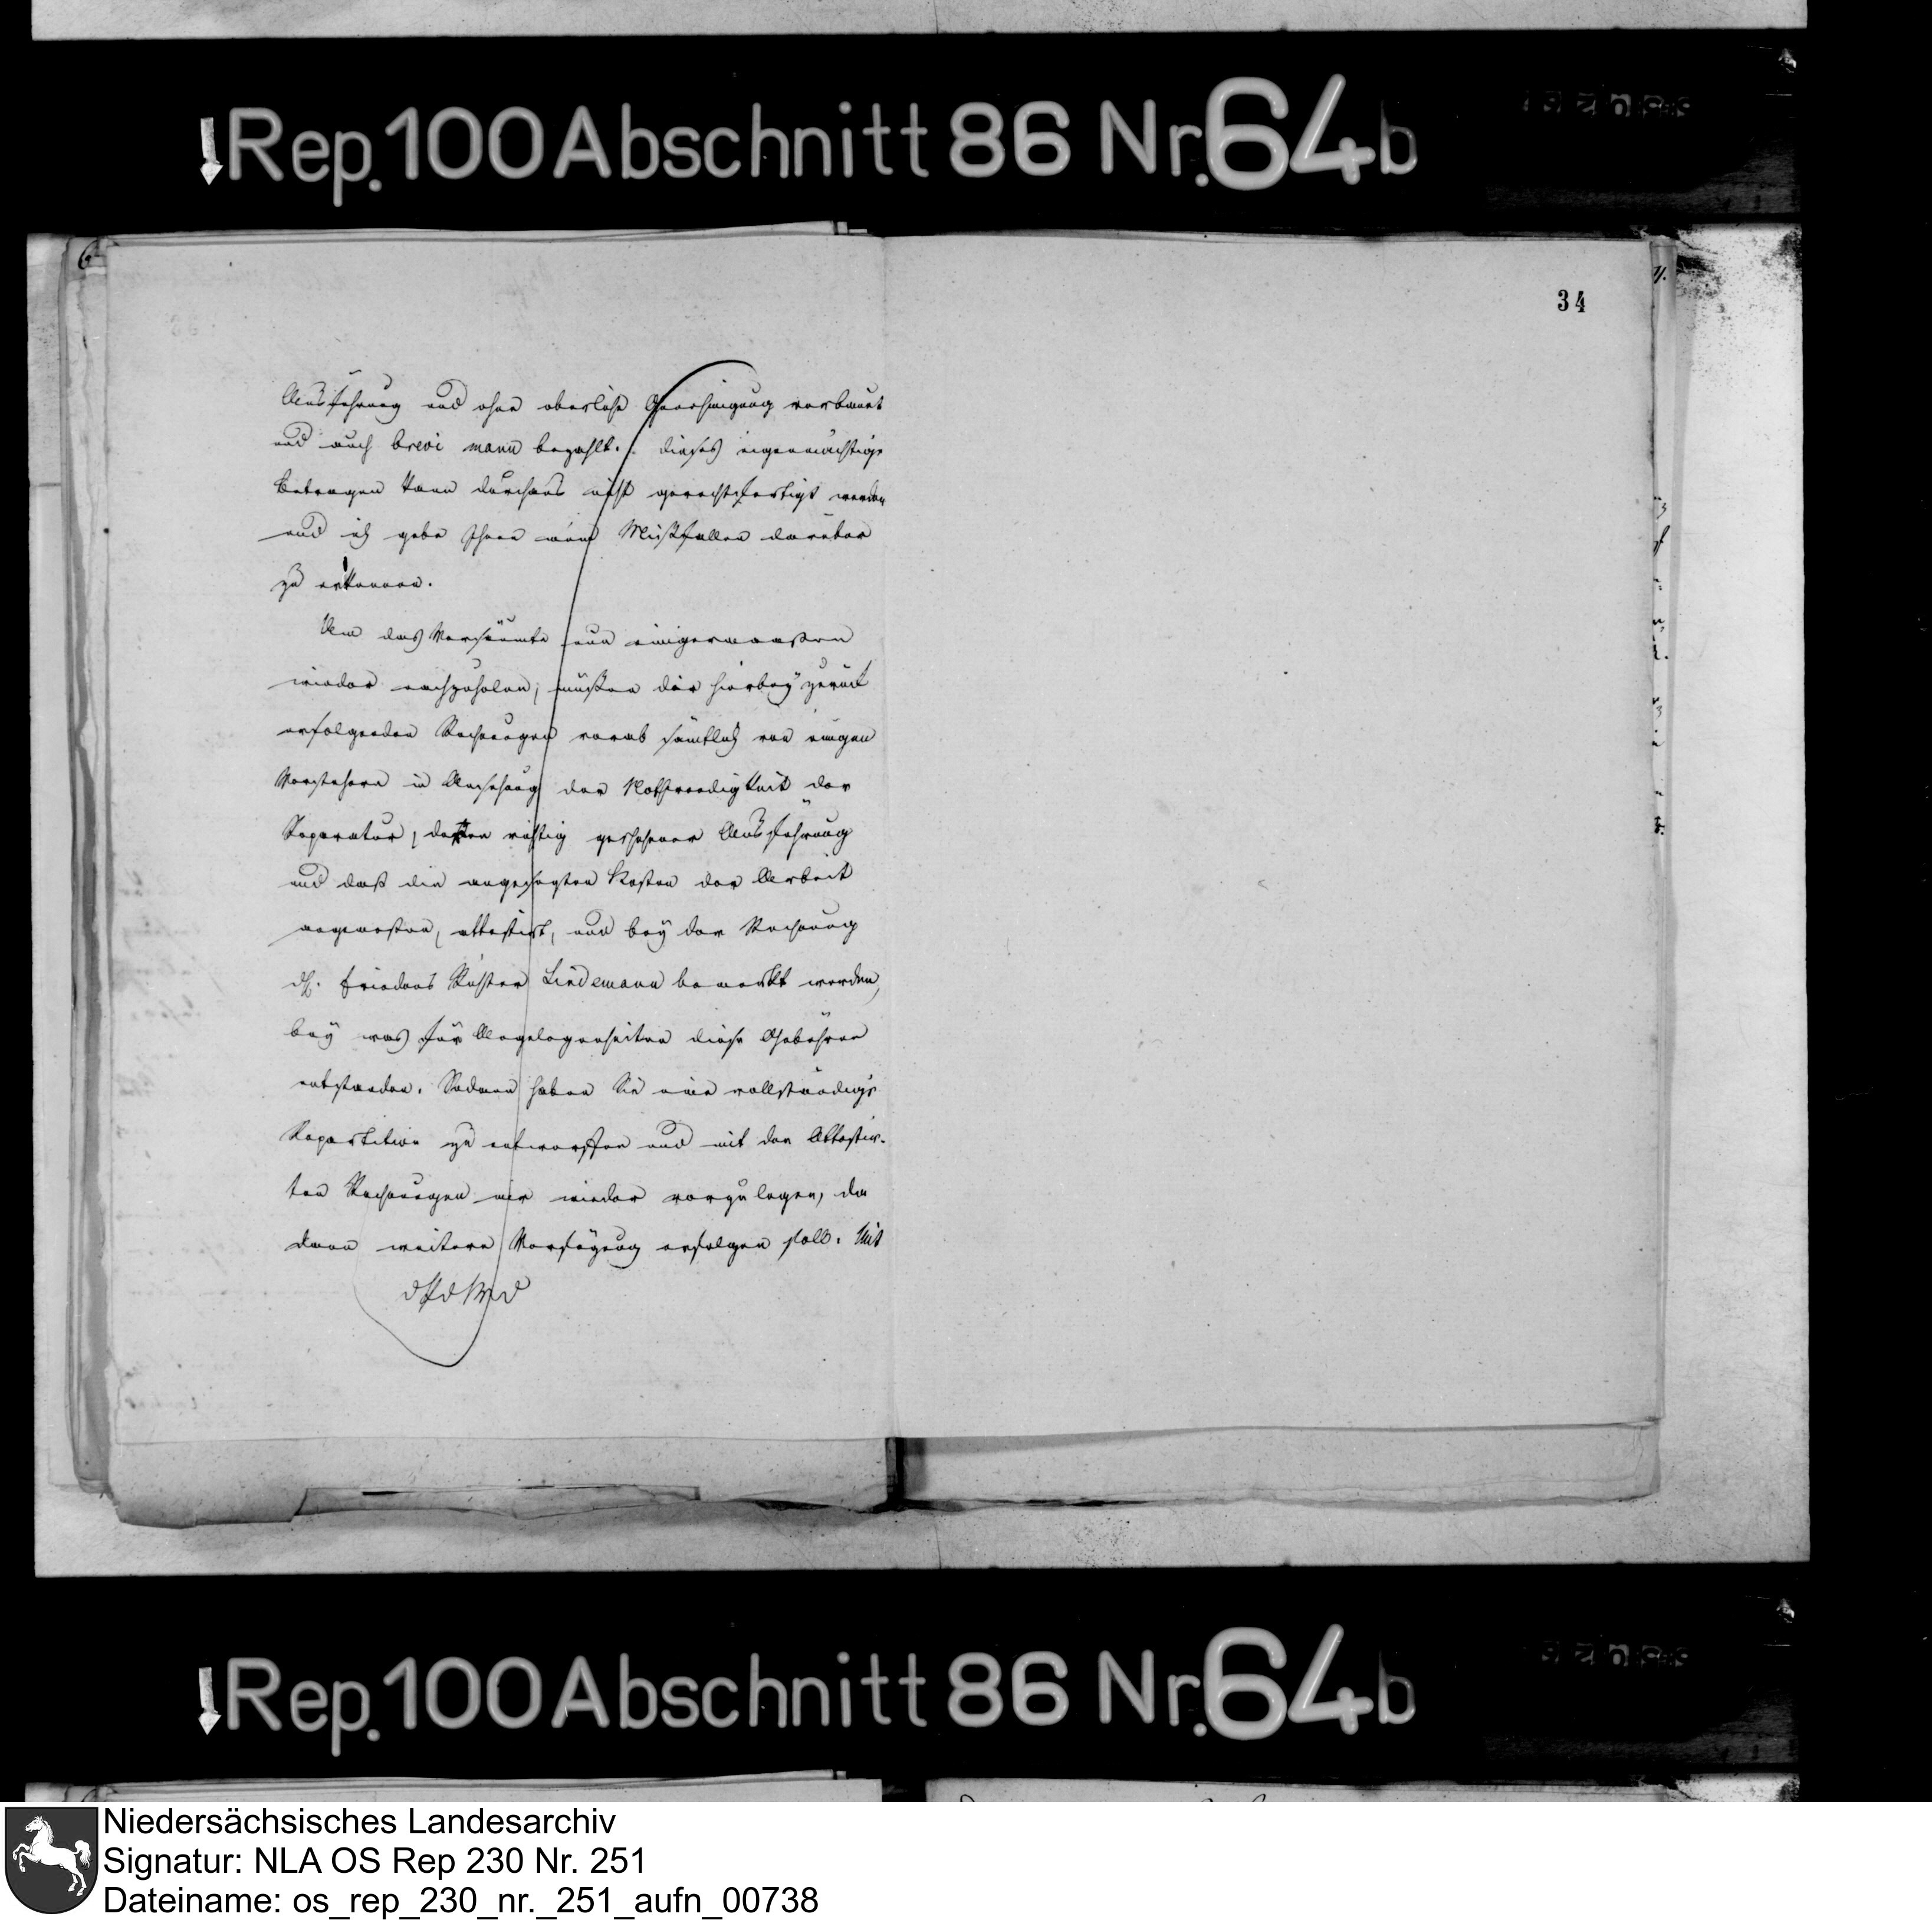 Rep. 100 Abschnitt 86 Nr. 64b
34
Ausführung und ohne oberliche Genehmigung verbauet
und auch brevi manu bezahlt. Dieses eigenmächtige
Betragen kann durchaus nicht gerechtfertigt werden
und ich gebe Ihnen mein Mißfallen darüber
zu erkennen.
Um das Versäumte nun einigermaaßen
wieder nachzuholen, müßen die hierbey zurück
erfolgenden Rechnungen vorab sämtlich von einigen
Vorstehern in Ansehung der Nothwendigkeit der
Reparatur, deren richtig geschehener Ausführung
und daß die angesezten Kosten der Arbeit
angemeßen, attestirt, und bey der Rechnung
des Friedens Richter Lindemann bemerkt werden,
bey was für Angelegenheiten diese Gebühren
entstanden. Sodann haben Sie eine vollständige
Repartition zu entwerfen und mit den Attestir-
ten Rechnungen mir wieder vorzulegen, da
dann weitere Verfügung erfolgen soll. Mit
Rep. 100 Abschnitt 86 Nr. 64b
Niedersächsisches Landesarchiv
Signatur: NLA OS Rep 230 Nr. 251
Dateiname: os_rep_230_nr._251_aufn_00738